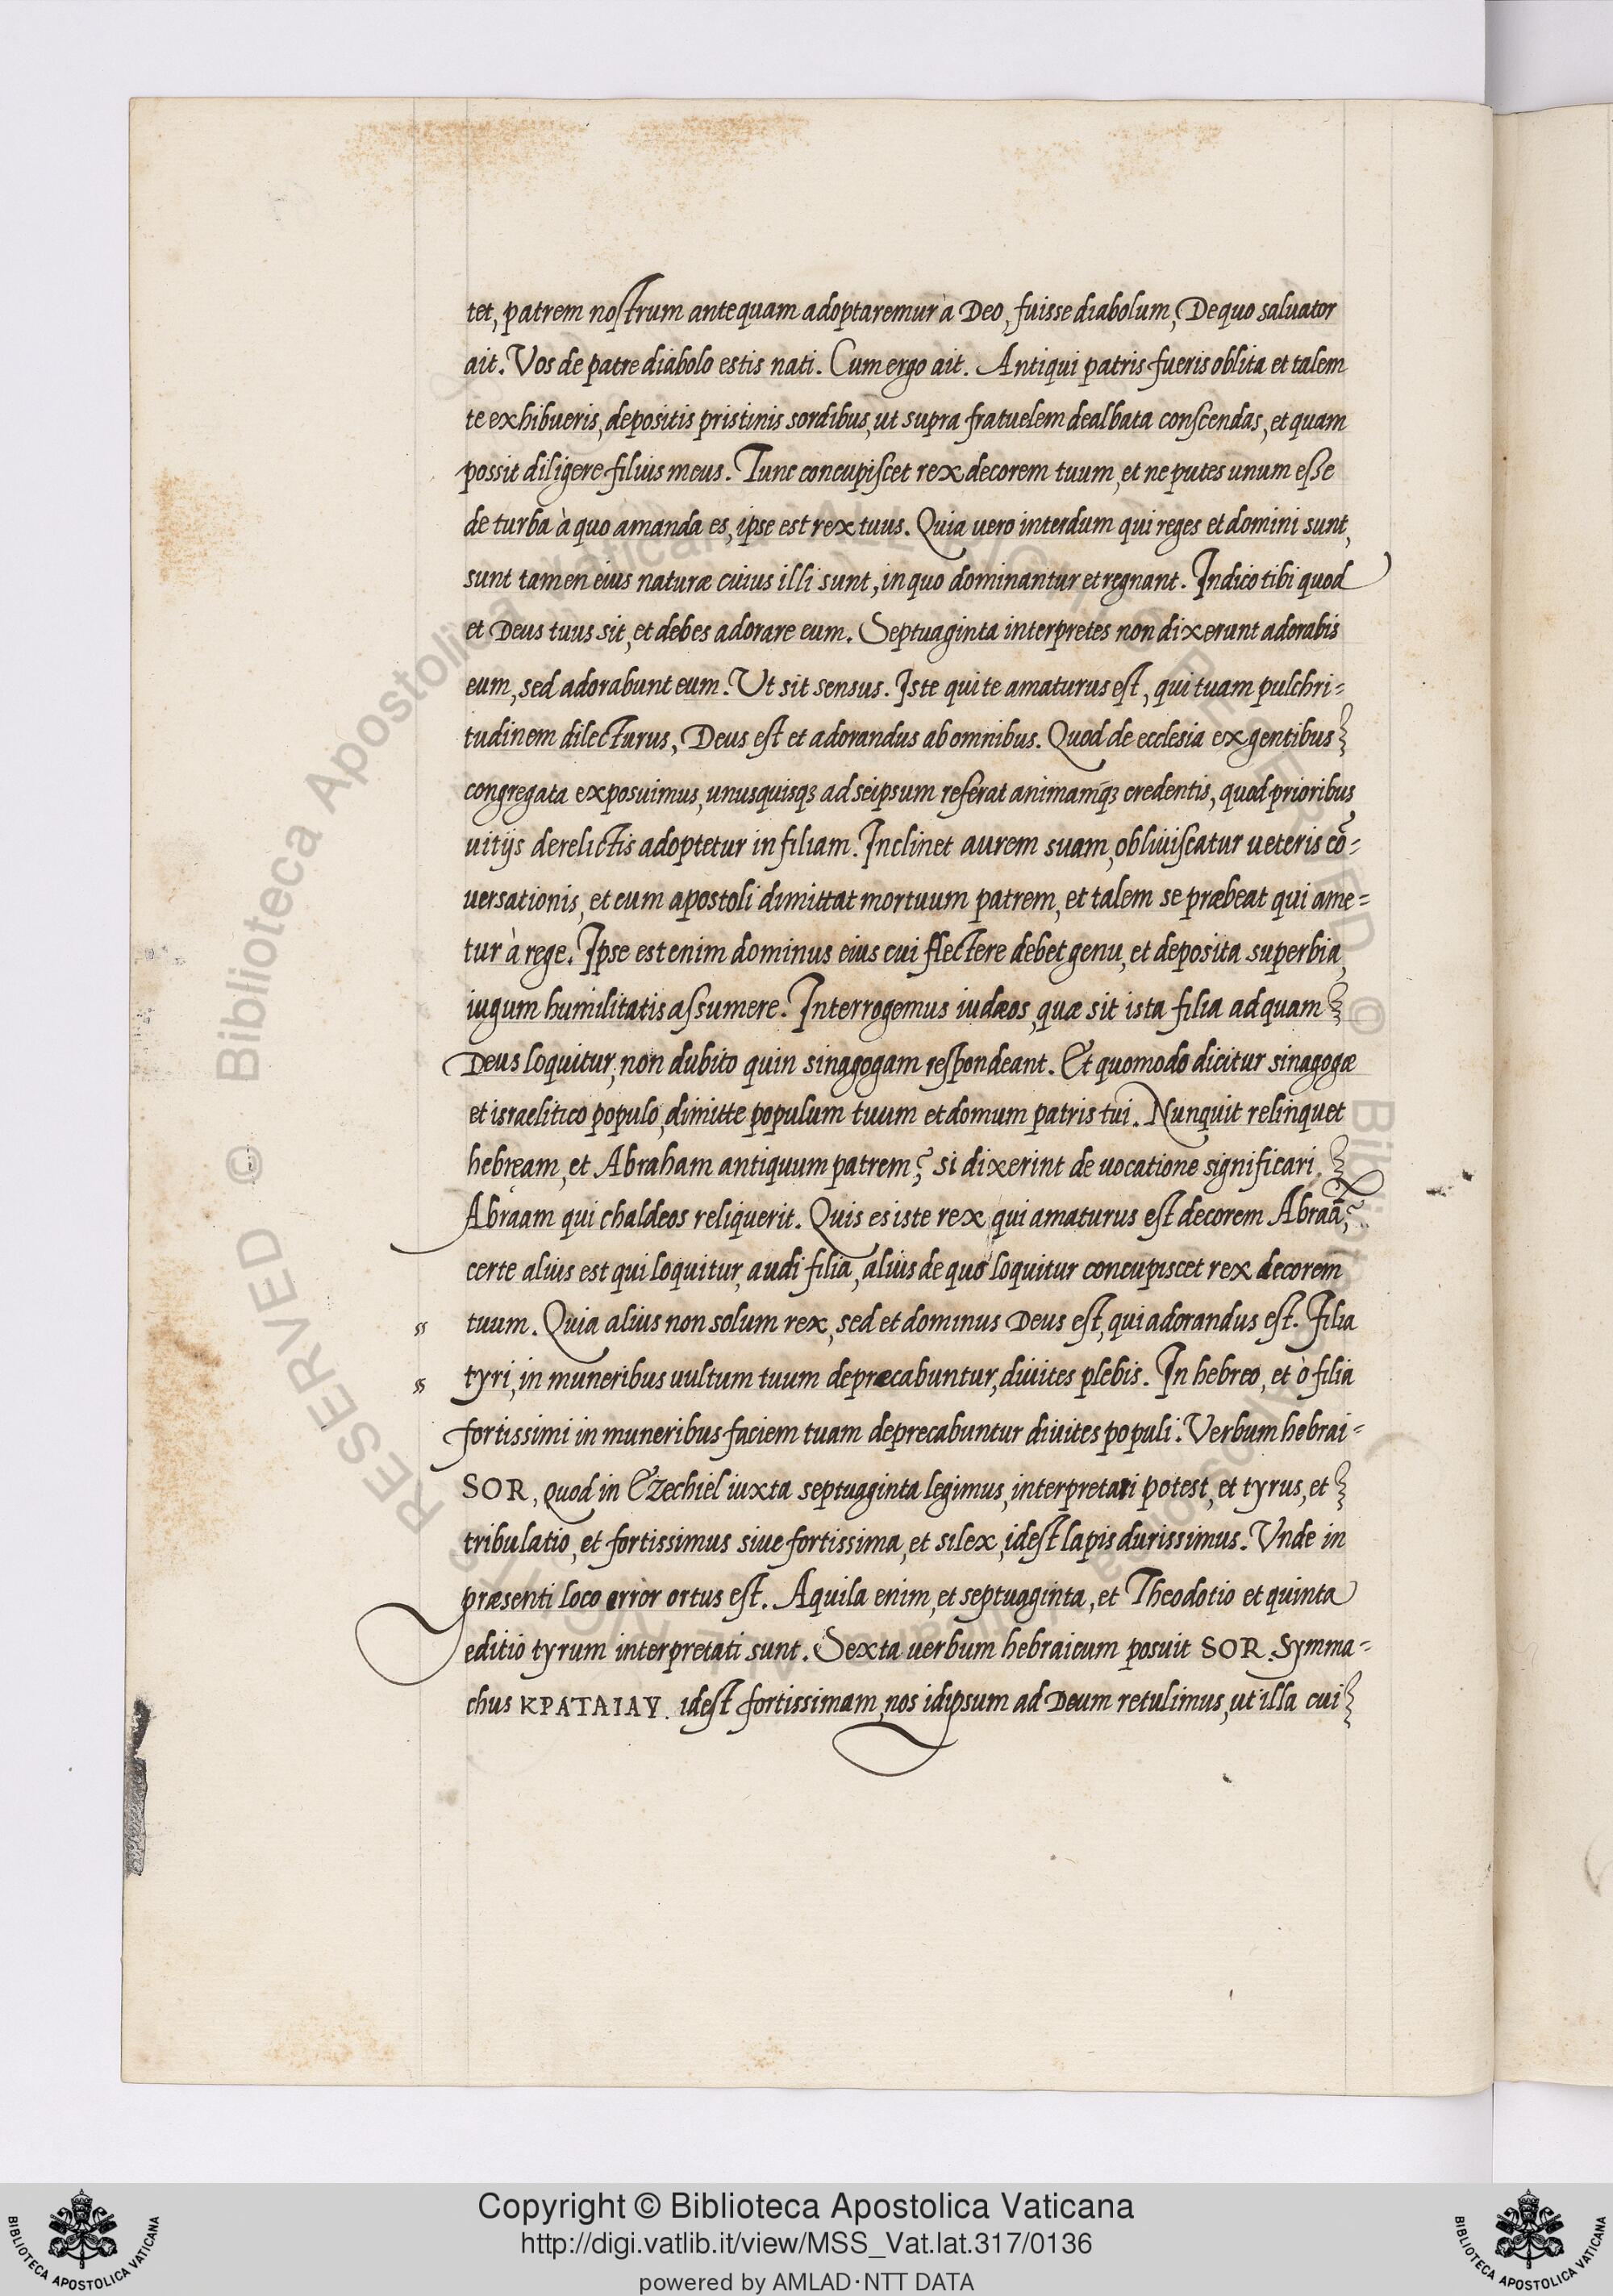 tet, patrem nostrum antequam adoptaremur à Deo, fuisse diabolum, De quo saluator
ait. Vos de patre diabolo estis nati. Cum ergo ait. Antiqui patris fueris oblita et talem
te exhibueris, depositis pristinis sordibus, ut supra fratuelem dealbata conscendas, et quam
possit diligere filius meus. Tunc concupiscet rex decorem tuum, et ne putes unum esse
de turba à quo amanda es, ipse est rex tuus. Quia uero interdum qui reges et domini sunt,
sunt tamen eius naturæ cuius illi sunt, in quo dominantur et regnant. Indico tibi quod
et Deus tuus sit, et debes adorare eum. Septuaginta interpretes non dixerunt adorabis
eum, sed adorabunt eum. Ut sit sensus. Iste qui te amaturus est, qui tuam pulchri=
tudinem dilecturus, Deus est et adorandus ab omnibus. Quod de ecclesia ex gentibus
congregata exposuimus, unusquisqʒ ad seipsum referat animamqʒ credentis, quod prioribus
uitijs derelictis adoptetur in filiam. Inclinet aurem suam, obliuiscatur ueteris cō=
uersationis, et cum apostoli dimittat mortuum patrem, et talem se præbeat qui ame=
tur à rege. Ipse est enim dominus eius cui flectere debet genu, et deposita superbia,
iugum humilitatis assumere. Interrogemus iudæos, quæ sit ista filia ad quam
Deus loquitur, non dubito quin sinagogam respondeant. Et quomodo dicitur sinagogæ
et israelitico populo, dimitte populum tuum et domum patris tui. Nunquit relinquet
hebream, et Abraham antiquum patrem? si dixerint de uocatione significari,
Abraam qui chaldeos reliquerit. Quis es iste rex qui amaturus est decorem Abraā?
certe alius est qui loquitur, audi filia, alius de quo loquitur concupiscet rex decorem
tuum. Quia alius non solum rex, sed et dominus Deus est, qui adorandus est. Filia
tyri, in muneribus uultum tuum depræcabuntur, diuites plebis. In hebreo, et ò filia
fortissimi in muneribus faciem tuam deprecabuntur diuites populi. Verbum hebrai=
SOR, quod in Ezechiel iuxta septuaginta legimus, interpretari potest, et tyrus, et
tribulatio, et fortissimus siue fortissima, et silex, idest lapis durissimus. Vnde in
præsenti loco error ortus est. Aquila enim, et septuaginta, et Theodotio et quinta
editio tyrum interpretati sunt. Sexta uerbum hebraicum posuit SOR. Symma=
chus ΚΡΑΤΑΙΑV. idest fortissimam, nos idipsum ad Deum retulimus, ut illa cui
Copyright © Biblioteca Apostolica Vaticana
http://digi.vatlib.it/view/MSS_Vat.lat.317/0136
powered by AMLAD·NTT DATA
BIBLIOTECA APOSTOLICA VATICANA
BIBLIOTECA APOSTOLICA VATICANA